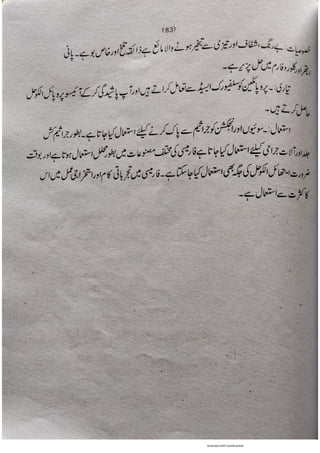 (63)
خصوصیات :۔ بے رنگ، شفاف اور تیزی سے تبخیر ہونے والا مائع ہے ذائقہ تلخ اور خاص بو ہے۔ پانی
ایتھر اور کلوروفارم میں حل پزیر ہے۔
تیاری :۔ پروپائلین کو سلفیورک ایسڈ سے تعامل کراتے ہیں اور آب پاشیدگی کر کے آئیسو پروپائل الکوہل
حاصل کرتے ہیں۔
استعمال :۔ سوئیوں اور انجکشن کو جراثیم سے پاک کرنے کیلئے استعمال کیا جاتا ہے۔ بطور جراثیم کش
جلد اور آلات جراحی کیلئے استعمال کیا جاتا ہے فارمیسی کی مختلف مصنوعات میں بطور محلل استعمال ہوتا ہے اور بوقت
ضرورت ایتھائل الکوہل کی جگہ بھی استعمال کیا جا سکتا ہے۔ فارمیسی میں تجرباتی کام اور استخراجی عمل میں اس
کا کثرت سے استعمال ہے۔
Scanned with CamScanner